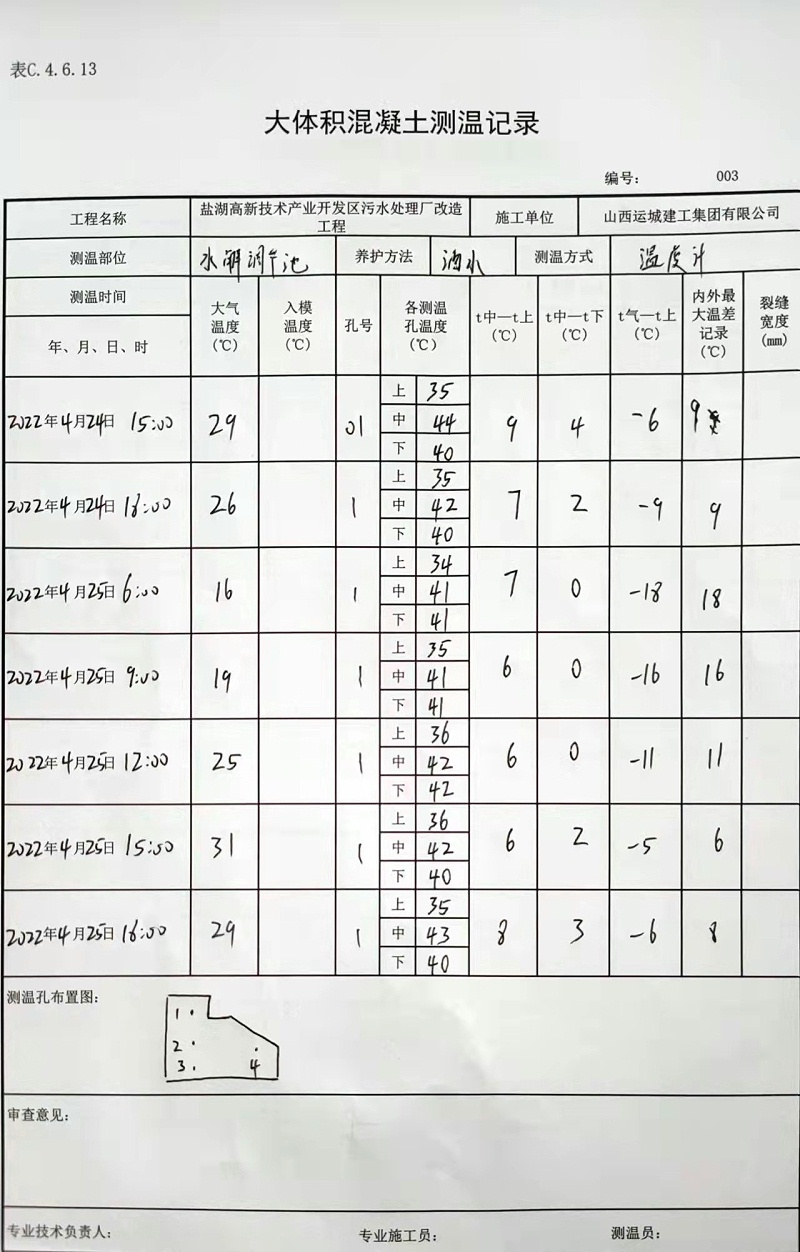 表C.4.6.13
大体积混凝土测温记录
编号： 003
工程名称 盐湖高新技术产业开发区污水处理厂改造工程 施工单位 山西运城建工集团有限公司
测温部位 水解调节池 养护方法 洒水 测温方式 温度计
测温时间
年、月、日、时
大气温度(℃) 入模温度(℃) 孔号 各测温孔温度(℃) t中—t上(℃) t中—t下(℃) t气—t上(℃) 内外最大温差记录(℃) 裂缝宽度(mm)
2022年4月24日 15:00 29 01 上 35 中 44 下 40 9 4 -6 9
2022年4月24日 18:00 26 1 上 35 中 42 下 40 7 2 -9 9
2022年4月25日 6:00 16 1 上 34 中 41 下 41 7 0 -18 18
2022年4月25日 9:00 19 1 上 35 中 41 下 41 6 0 -16 16
2022年4月25日 12:00 25 1 上 36 中 42 下 42 6 0 -11 11
2022年4月25日 15:00 31 1 上 36 中 42 下 40 6 2 -5 6
2022年4月25日 18:00 29 1 上 35 中 43 下 40 8 3 -6 8
测温孔布置图：
1
2
3 4
审查意见：
专业技术负责人： 专业施工员： 测温员：